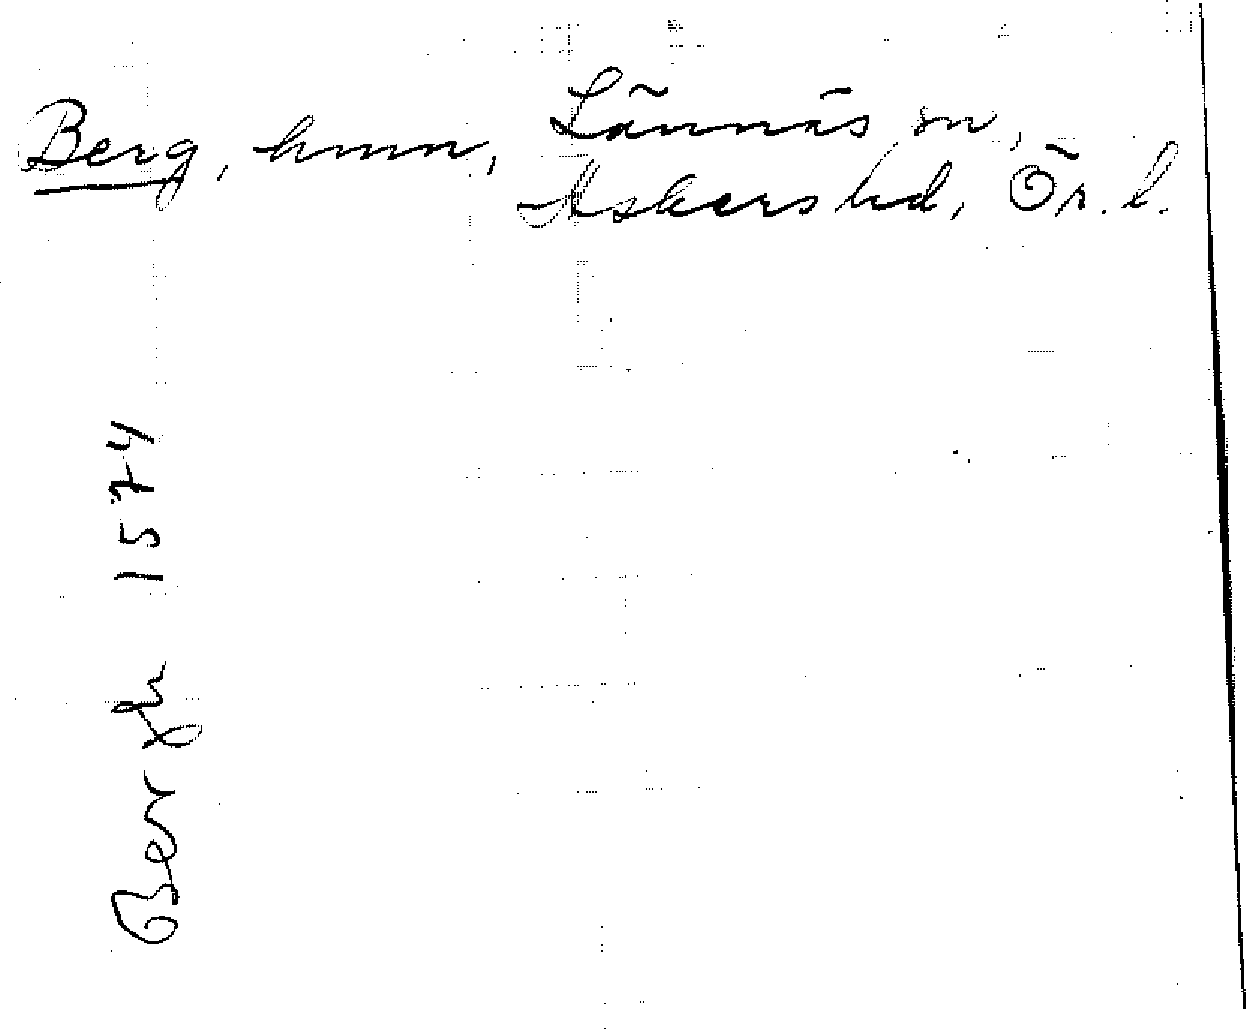 Berg, hmn, Lännäs sn,
Askers hd, Ör. l.
Bergh 1574